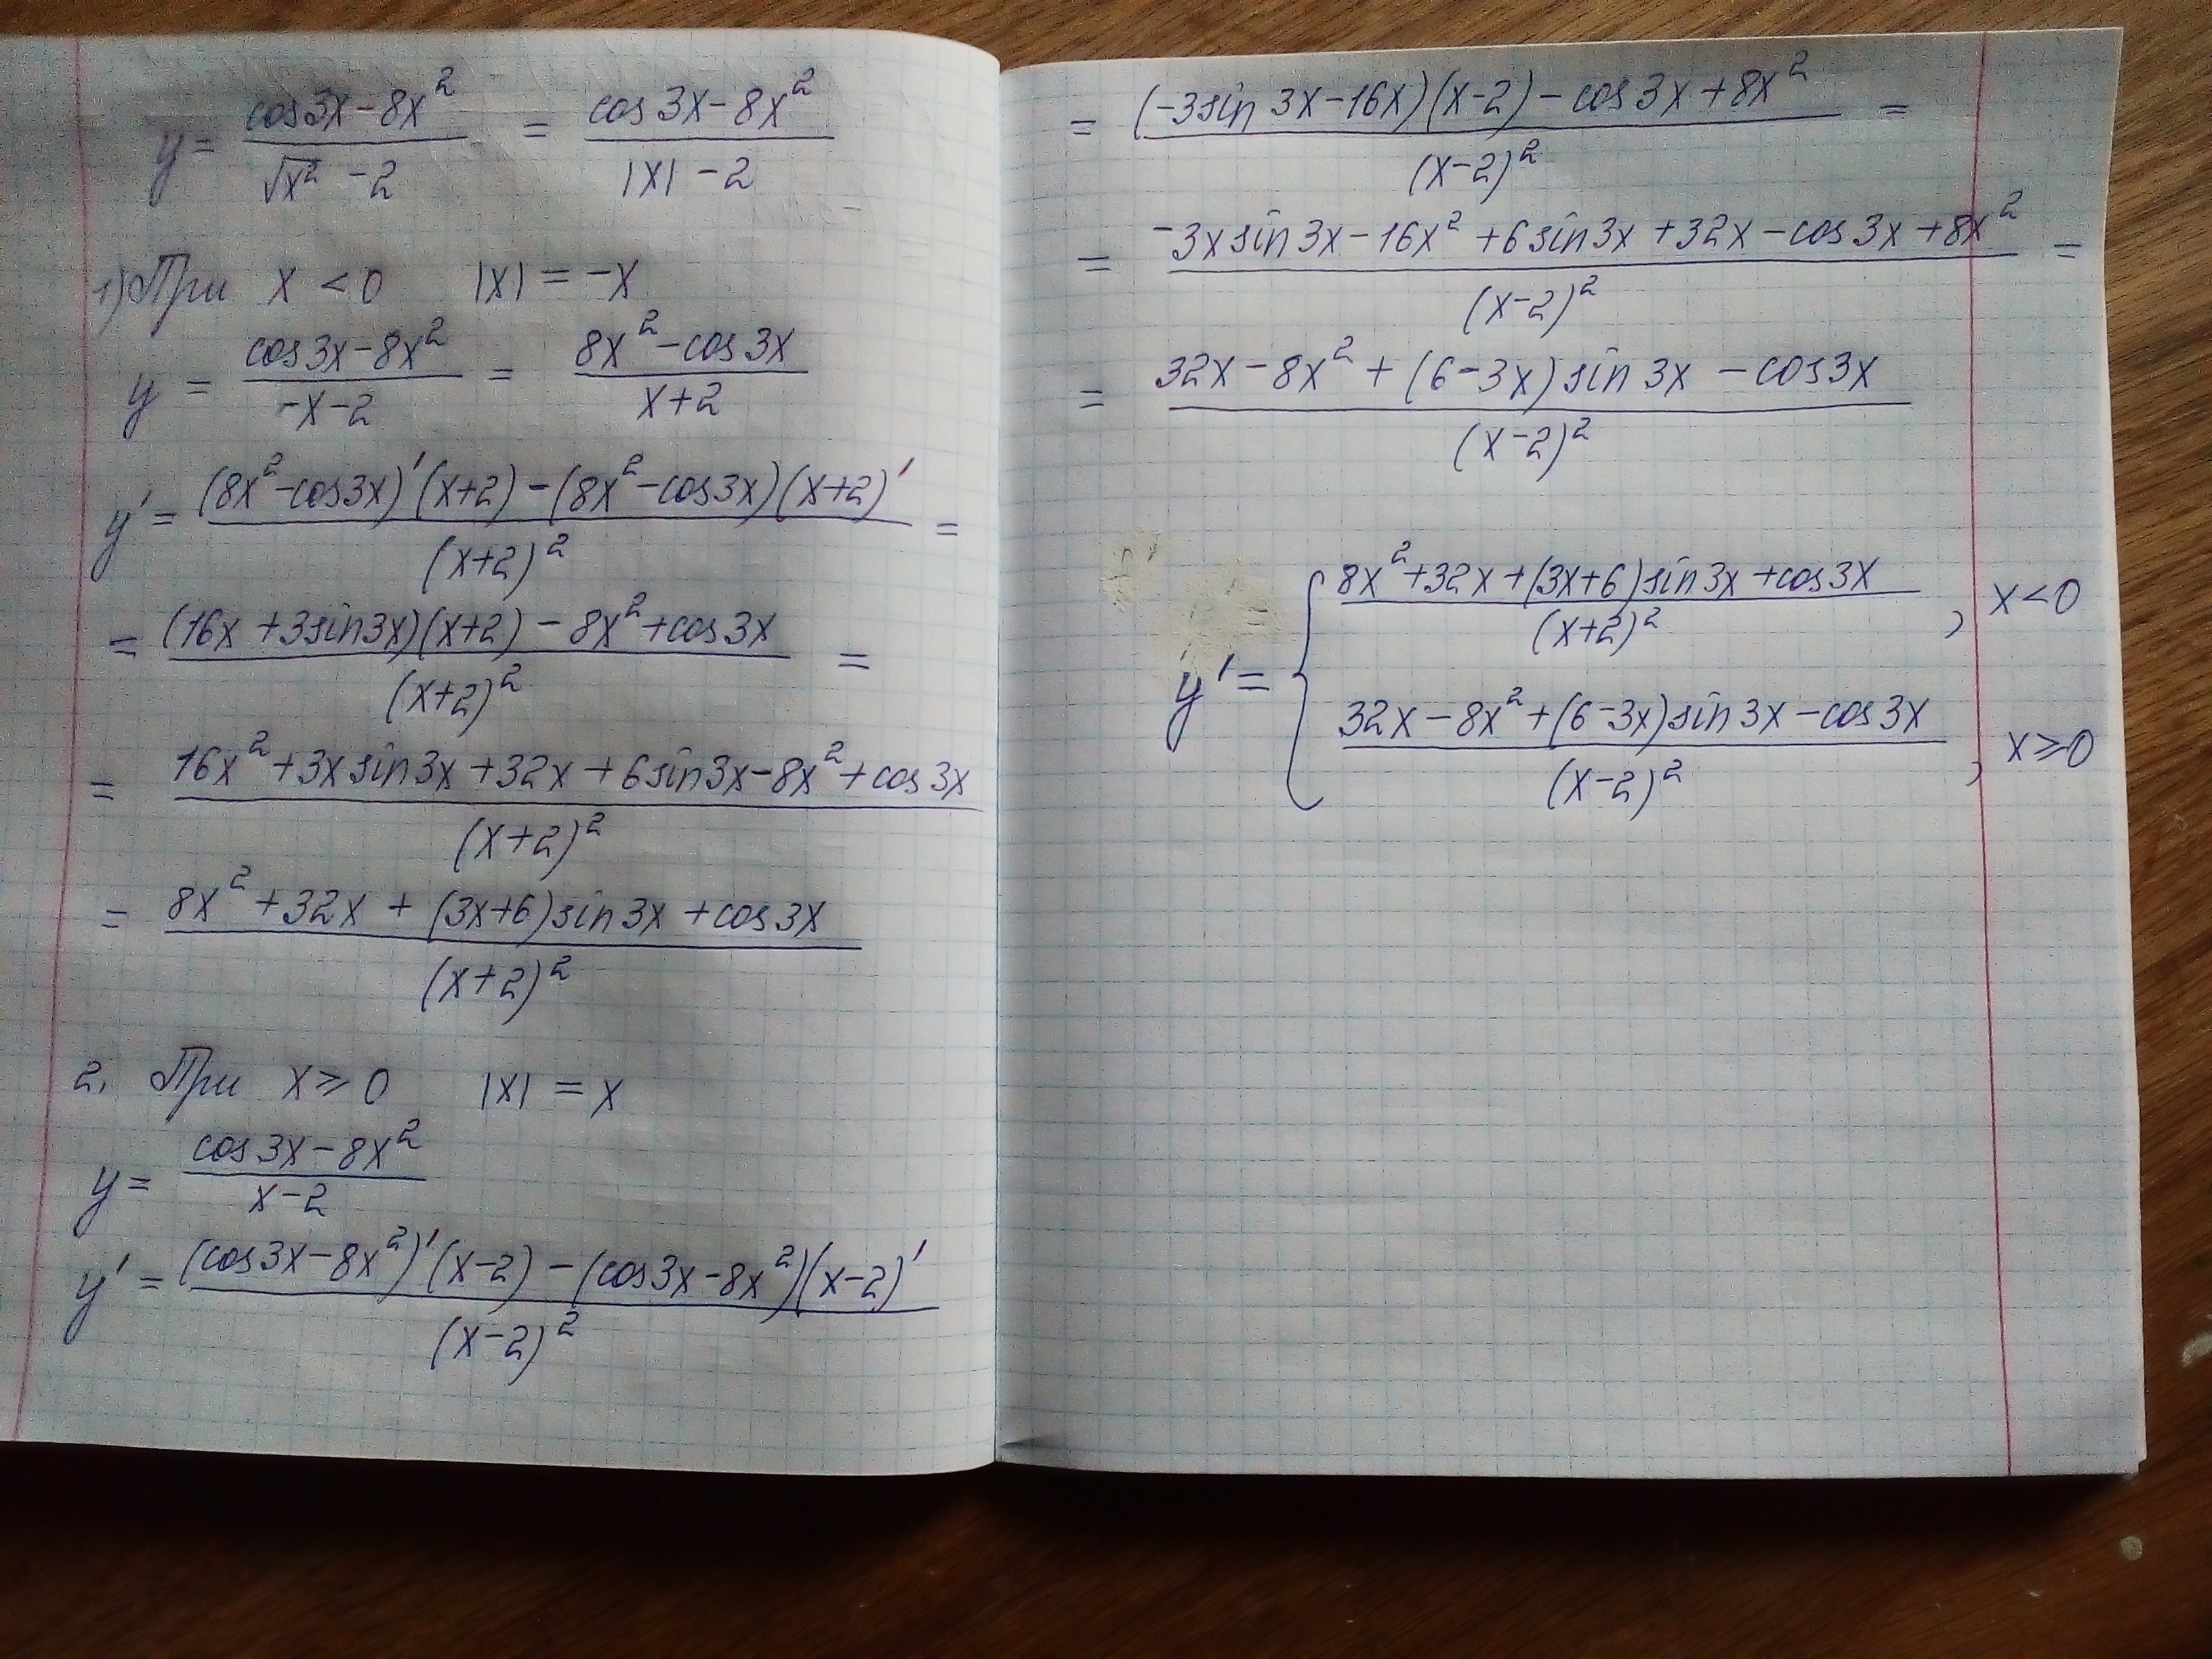 y = (cos3x-8x²)/(√x² -2) = (cos 3x-8x²)/(|x| -2)
1) При x < 0 |x| = -x
y = (cos3x-8x²)/(-x-2) = (8x²-cos 3x)/(x+2)
y' = ((8x²-cos3x)'(x+2) - (8x²-cos3x)(x+2)')/(x+2)² =
= ((16x +3sin3x)(x+2) - 8x²+cos3x)/(x+2)² =
= (16x²+3x sin3x +32x + 6sin3x-8x²+cos3x)/(x+2)²
= (8x²+32x + (3x+6)sin3x +cos3x)/(x+2)²
2. При x ⩾ 0 |x| = x
y = (cos3x-8x²)/(x-2)
y' = ((cos3x-8x²)'(x-2) - (cos3x-8x²)(x-2)')/(x-2)²
= ((-3sin 3x-16x)(x-2) - cos3x+8x²)/(x-2)² =
= (-3x sin3x-16x²+6sin3x+32x-cos3x+8x²)/(x-2)² =
= (32x-8x²+(6-3x)sin3x -cos3x)/(x-2)²
y' = { (8x²+32x+(3x+6)sin3x+cos3x)/(x+2)² , x<0
(32x-8x²+(6-3x)sin3x-cos3x)/(x-2)² , x⩾0